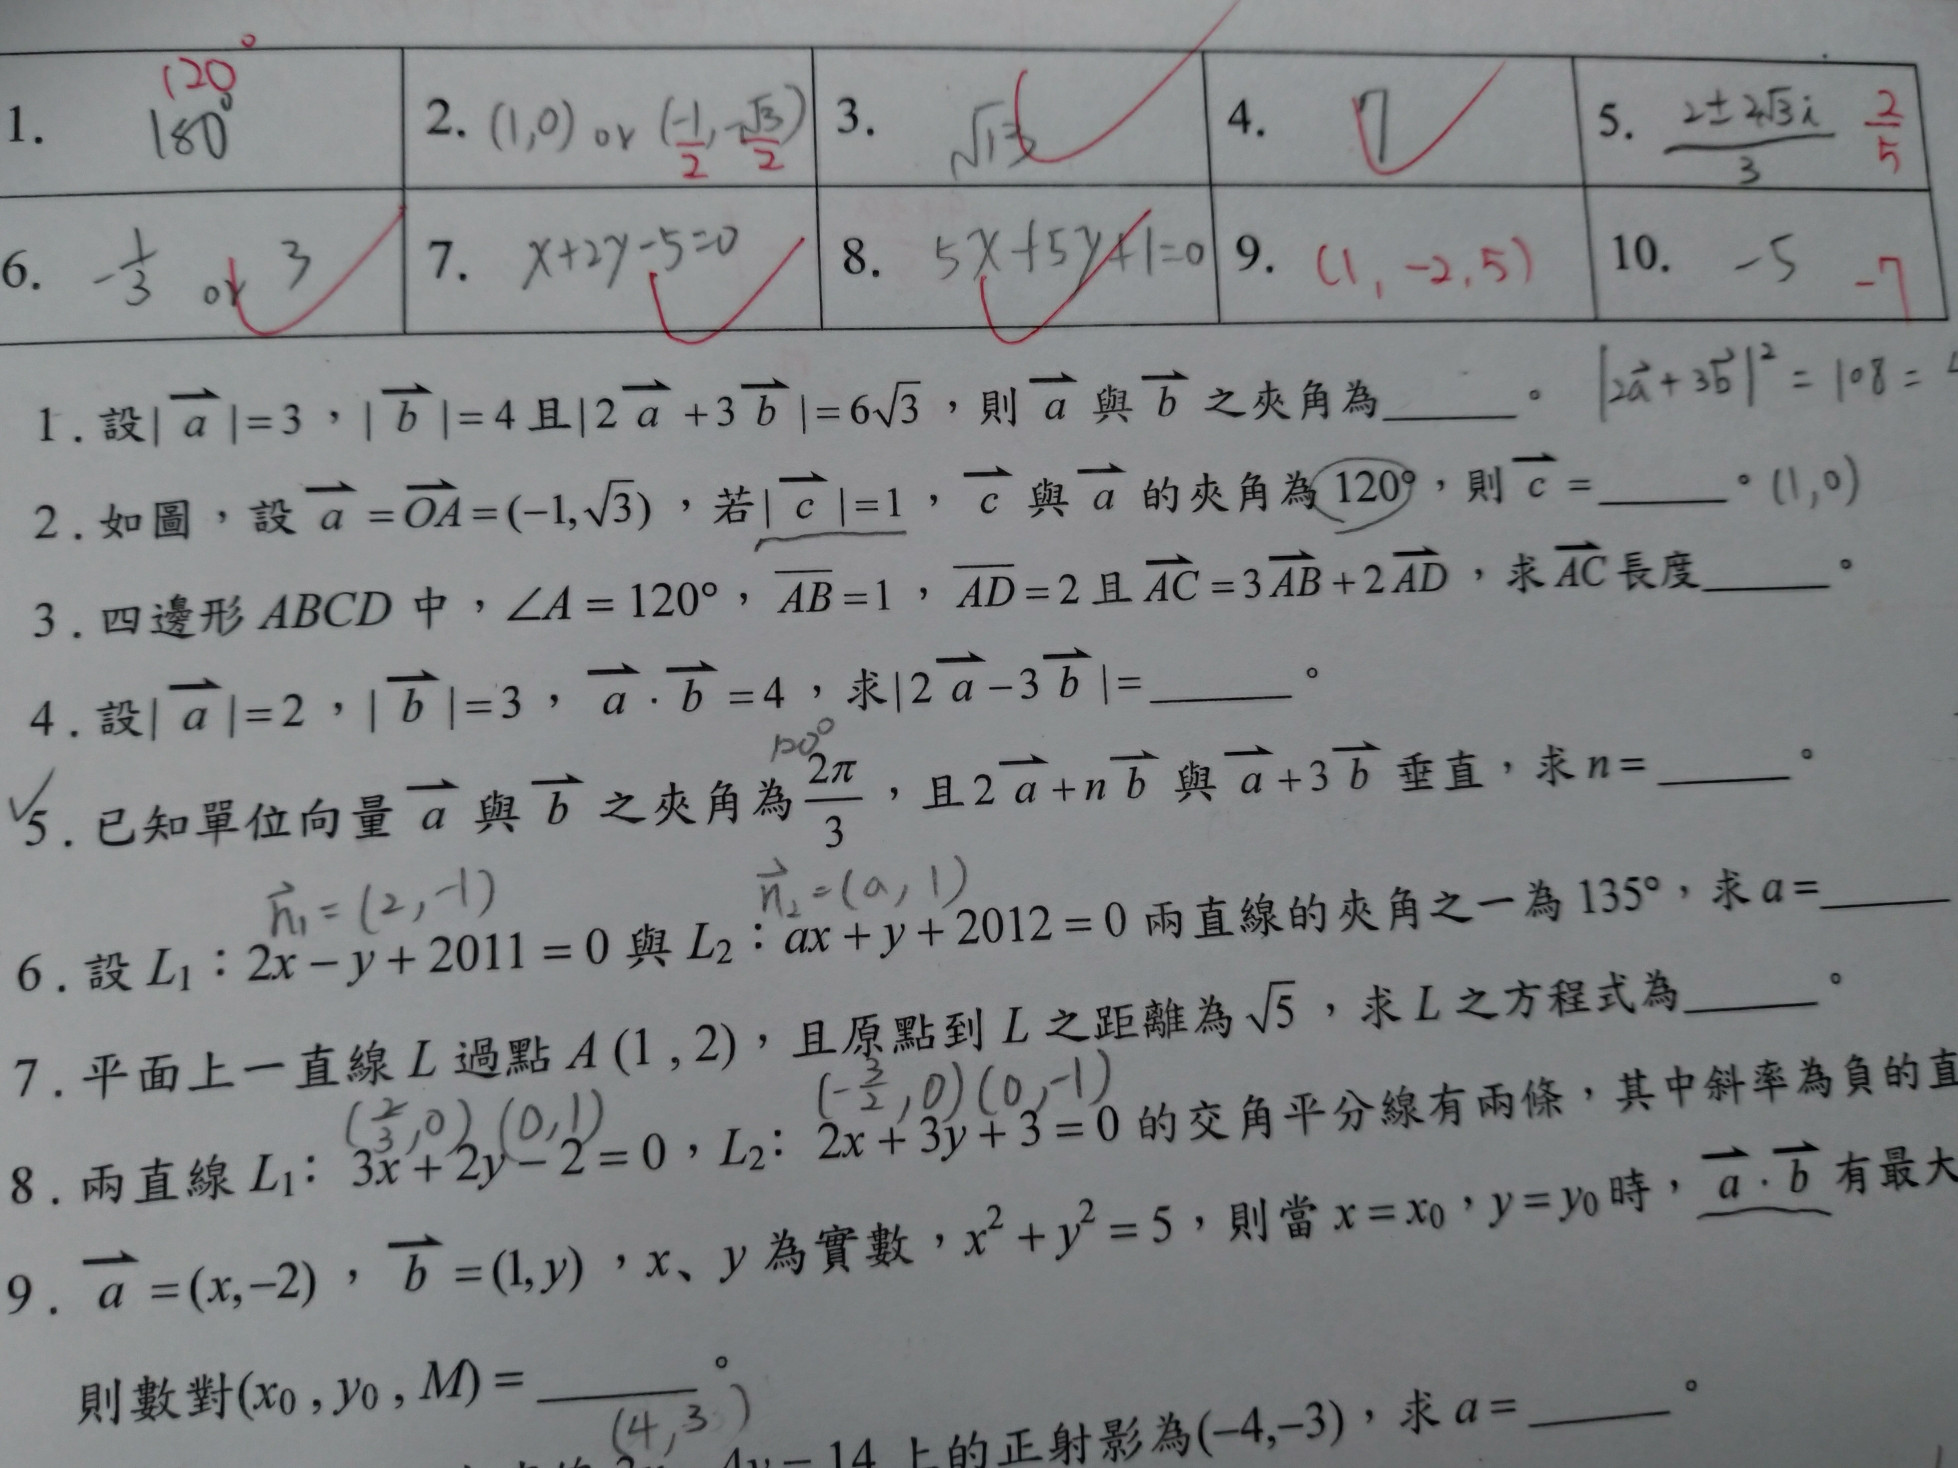 120°
1. 180° 2. (1,0) or (-1/2, -√3/2) 3. √13 4. 7 5. (2±2√3i)/3 2/5
6. -1/3 or 3 7. x+2y-5=0 8. 5x+5y+1=0 9. (1, -2, 5) 10. -5 -7
1. 設|a⃗|=3，|b⃗|=4且|2a⃗+3b⃗|=6√3，則a⃗與b⃗之夾角為______。 |2a⃗+3b⃗|²=108=
2. 如圖，設a⃗=OA⃗=(-1,√3)，若|c⃗|=1，c⃗與a⃗的夾角為120°，則c⃗=______。(1,0)
3. 四邊形ABCD中，∠A=120°，AB=1，AD=2且AC⃗=3AB⃗+2AD⃗，求AC⃗長度______。
4. 設|a⃗|=2，|b⃗|=3，a⃗·b⃗=4，求|2a⃗-3b⃗|=______。
120°
5. 已知單位向量a⃗與b⃗之夾角為2π/3，且2a⃗+nb⃗與a⃗+3b⃗垂直，求n=______。
n⃗₁=(2,-1) n⃗₂=(a,1)
6. 設L₁：2x-y+2011=0與L₂：ax+y+2012=0兩直線的夾角之一為135°，求a=______
7. 平面上一直線L過點A(1,2)，且原點到L之距離為√5，求L之方程式為______。
(2/3,0) (0,1) (-3/2,0) (0,-1)
8. 兩直線L₁：3x+2y-2=0，L₂：2x+3y+3=0的交角平分線有兩條，其中斜率為負的直
9. a⃗=(x,-2)，b⃗=(1,y)，x、y為實數，x²+y²=5，則當x=x₀，y=y₀時，a⃗·b⃗有最大
則數對(x₀,y₀,M)=______。
(4,3)
上的正射影為(-4,-3)，求a=______。